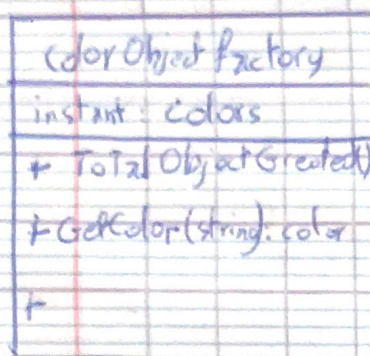 color Object factory
instant : colors
+ ToTal ObjectCreated()
+ GetColor(string): color
+